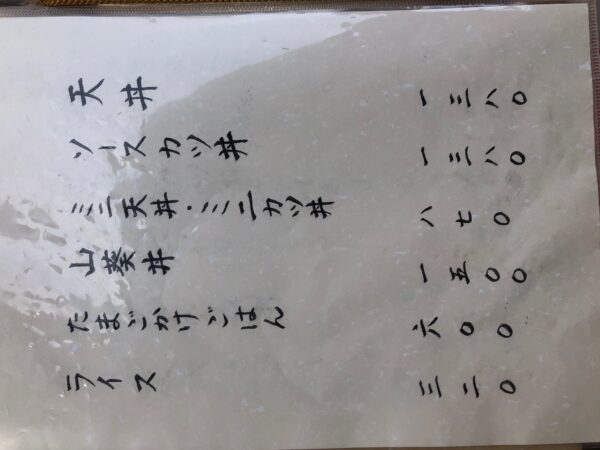 天丼 一三八〇
ソースカツ丼 一三八〇
ミニ天丼・ミニカツ丼 八七〇
山葵丼 一五〇〇
たまごかけごはん 六〇〇
ライス 三二〇